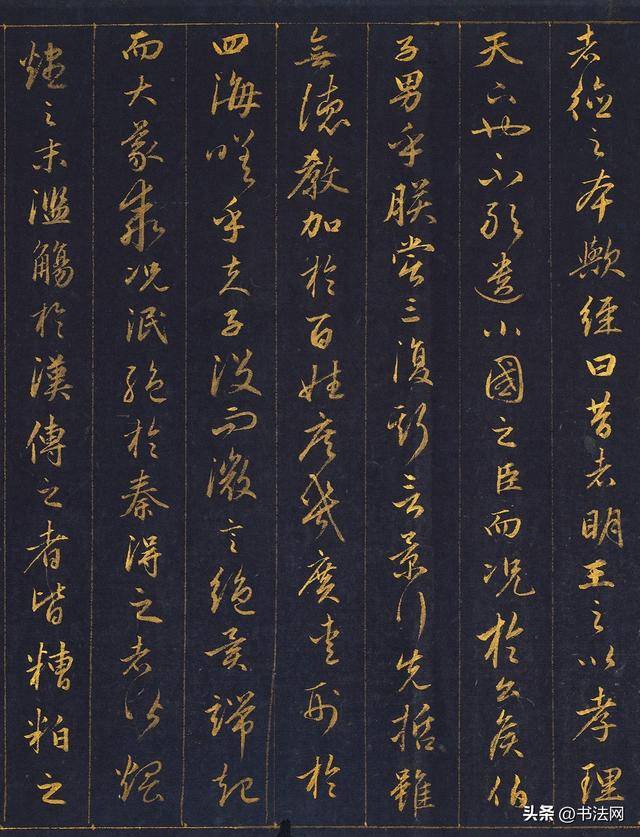 者德之本歟經曰昔者明王之以孝理
天下也不敢遺小國之臣而况於公侯伯
子男乎朕嘗三復斯言景行先哲雖
無德教加於百姓庶幾廣愛刑於
四海嗟乎夫子沒而微言絕異端起
而大義乖况泯絕於秦得之者皆煨
燼之末濫觴於漢傳之者皆糟粕之
头条 @书法网